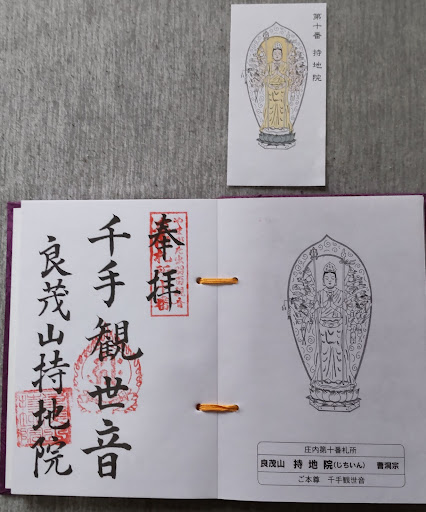 第十番 持地院
奉拝
千手観世音
良茂山持地院
庄内第十番札所
良茂山 持地院(じちいん) 曹洞宗
ご本尊 千手観世音